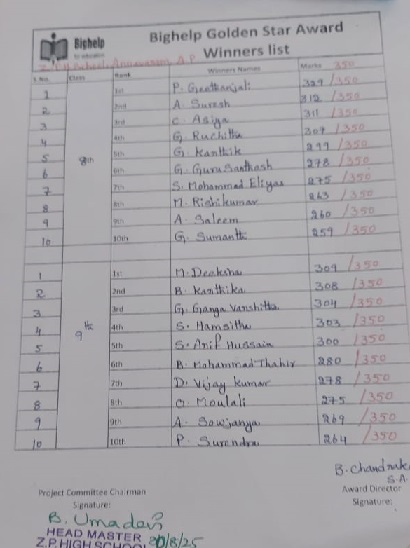 Bighelp
for education
Bighelp Golden Star Award
Winners list
S.No. Class Rank Winners Names Marks 350
1 8th 1st P. Geethanjali 329/350
2 2nd A. Suresh 312/350
3 3rd C. Asiya 311/350
4 4th G. Ruchitha 307/350
5 5th G. Karthik 299/350
6 6th G. Guru Santhosh 278/350
7 7th S. Mohammad Eliyas 275/350
8 8th M. Rishi kumar 263/350
9 9th A. Saleem 260/350
10 10th G. Sumanth 259/350
1 9th 1st M. Deeksha 309/350
2 2nd B. Karthika 308/350
3 3rd G. Ganga Varshitha 304/350
4 4th S. Hamsitha 303/350
5 5th S. Arif Hussain 300/350
6 6th B. Mohammad Thahir 280/350
7 7th D. Vijay kumar 278/350
8 8th O. Moulali 275/350
9 9th A. Sowjanya 269/350
10 10th P. Surendra 264/350
B. Chandrak
S.A.
Project Committee Chairman Award Director
Signature: Signature:
B. Umadevi
HEAD MASTER
Z.P. HIGH SCHOOL 20/8/25